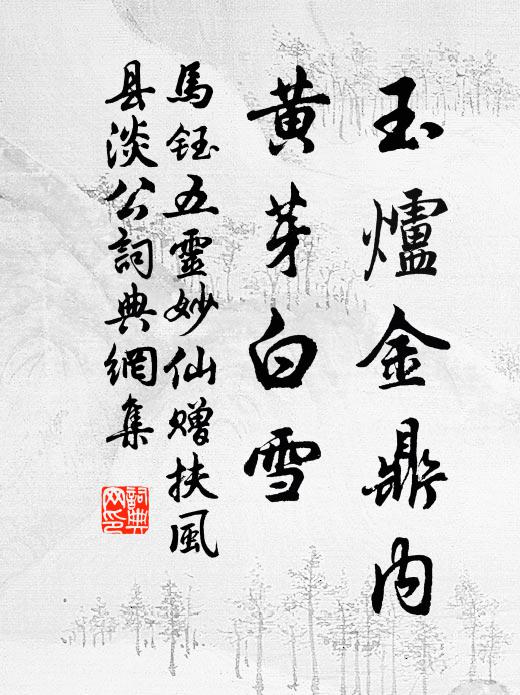 玉爐金鼎內
黃芽白雪
馬鈺五靈妙仙贈扶風
县淡公詞典網集
詞典網印